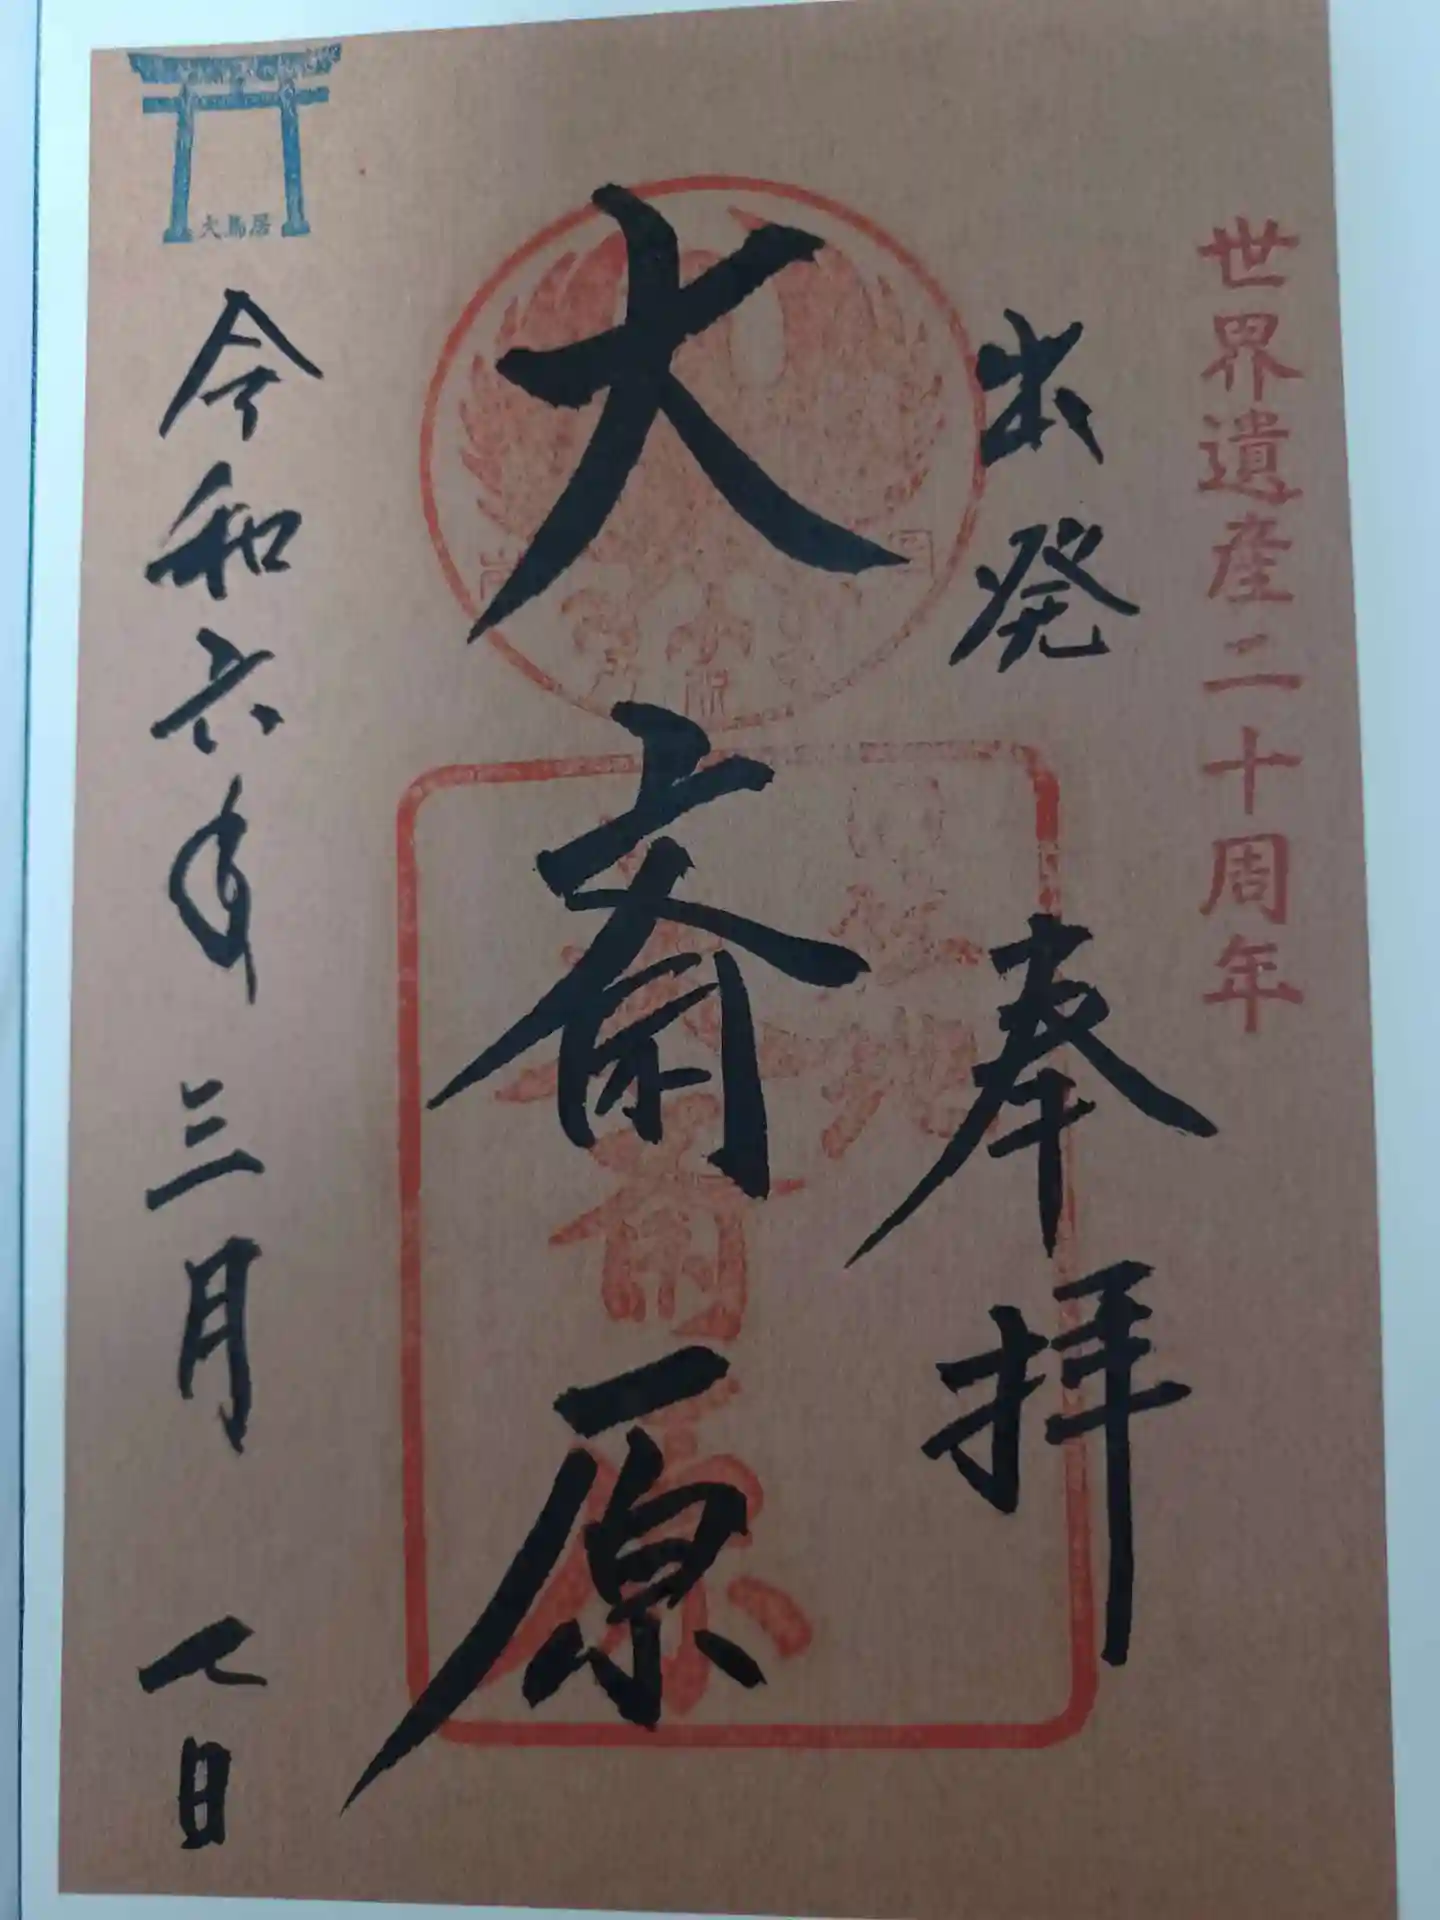 世界遺産二十周年
出発
奉拝
大斎原
大斎原
大鳥居
令和六年三月七日